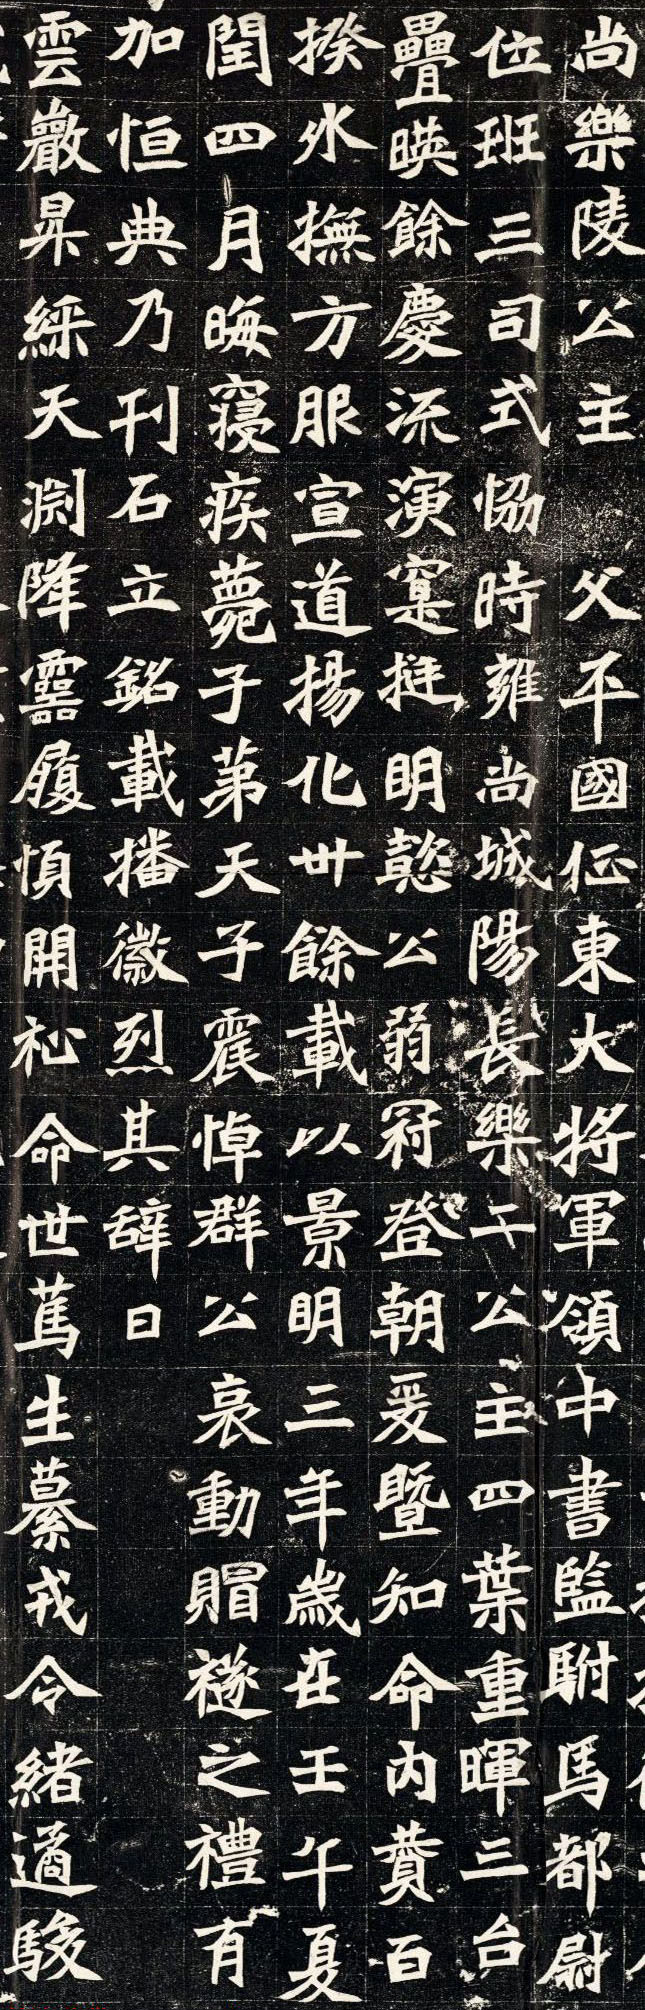 尚樂陵公主　父平國征東大將軍領中書監駙馬都尉
位班三司式恊時雍尚城陽長樂二公主四葉重暉三台
疊暎餘慶流演寔挺明懿公弱冠登朝爰暨知命內贊百
揆外撫方服宣道揚化卅餘載以景明三年歲在壬午夏
閏四月晦寢疾薨于第天子震悼群公哀動賵襚之禮有
加恒典乃刊石立銘載播徽烈其辭曰
雲巖昇綵天淵降靈履順開祉命世篤生纂戎令緒遹駿